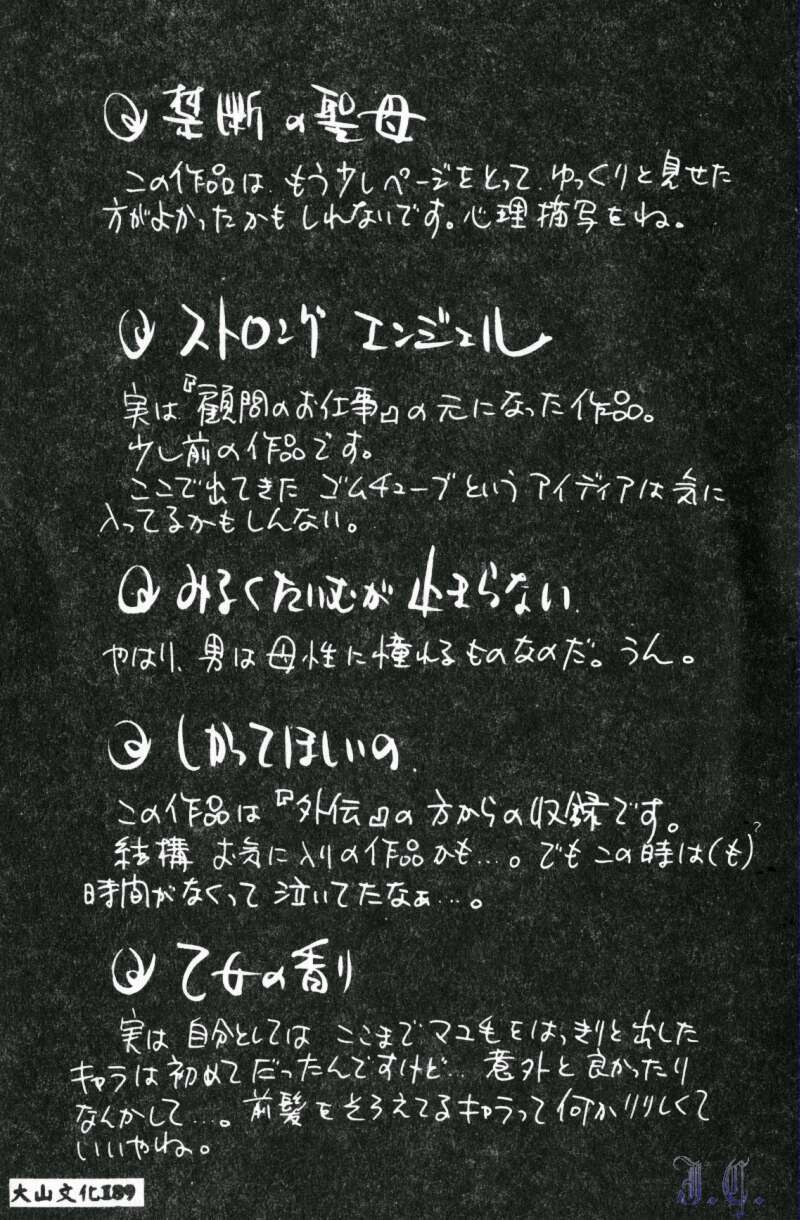 禁断の聖母
この作品は、もう少しページをとって、ゆっくりと見せた
方がよかったかもしれないです。心理描写をね。
ストロング エンジェル
実は『顧問のお仕事』の元になった作品。
少し前の作品です。
ここで出てきた ゴムチューブというアイディアは気に
入ってるかもしんない。
みるくたいむが止まらない
やはり、男は母性に憧れるものなのだ。うん。
しかってほしいの
この作品は『外伝』の方からの収録です。
結構 お気に入りの作品かも…。でもこの時は(も)?
時間がなくって 泣いてたなぁ…。
乙女の香り
実は 自分としては ここまでマユ毛をはっきりと出した
キャラは初めてだったんですけど… 意外と良かったり
なんかして…。前髪をそろえてるキャラって何かりりしくて
いいやね。
大山文化I89
J.Q.